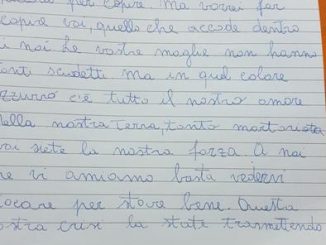 per capire ma vorrei far
capire voi, quello che accade dentro
i noi le vostre maglie non hanno
tanti scudetti ma in quel colore
azzurro c'è tutto il nostro amore
della nostra terra, tanto martoriata
voi siete la nostra forza. a noi
che vi amiamo basta vedervi
giocare per stare bene. Questa
ostra crisi la state trasmettendo